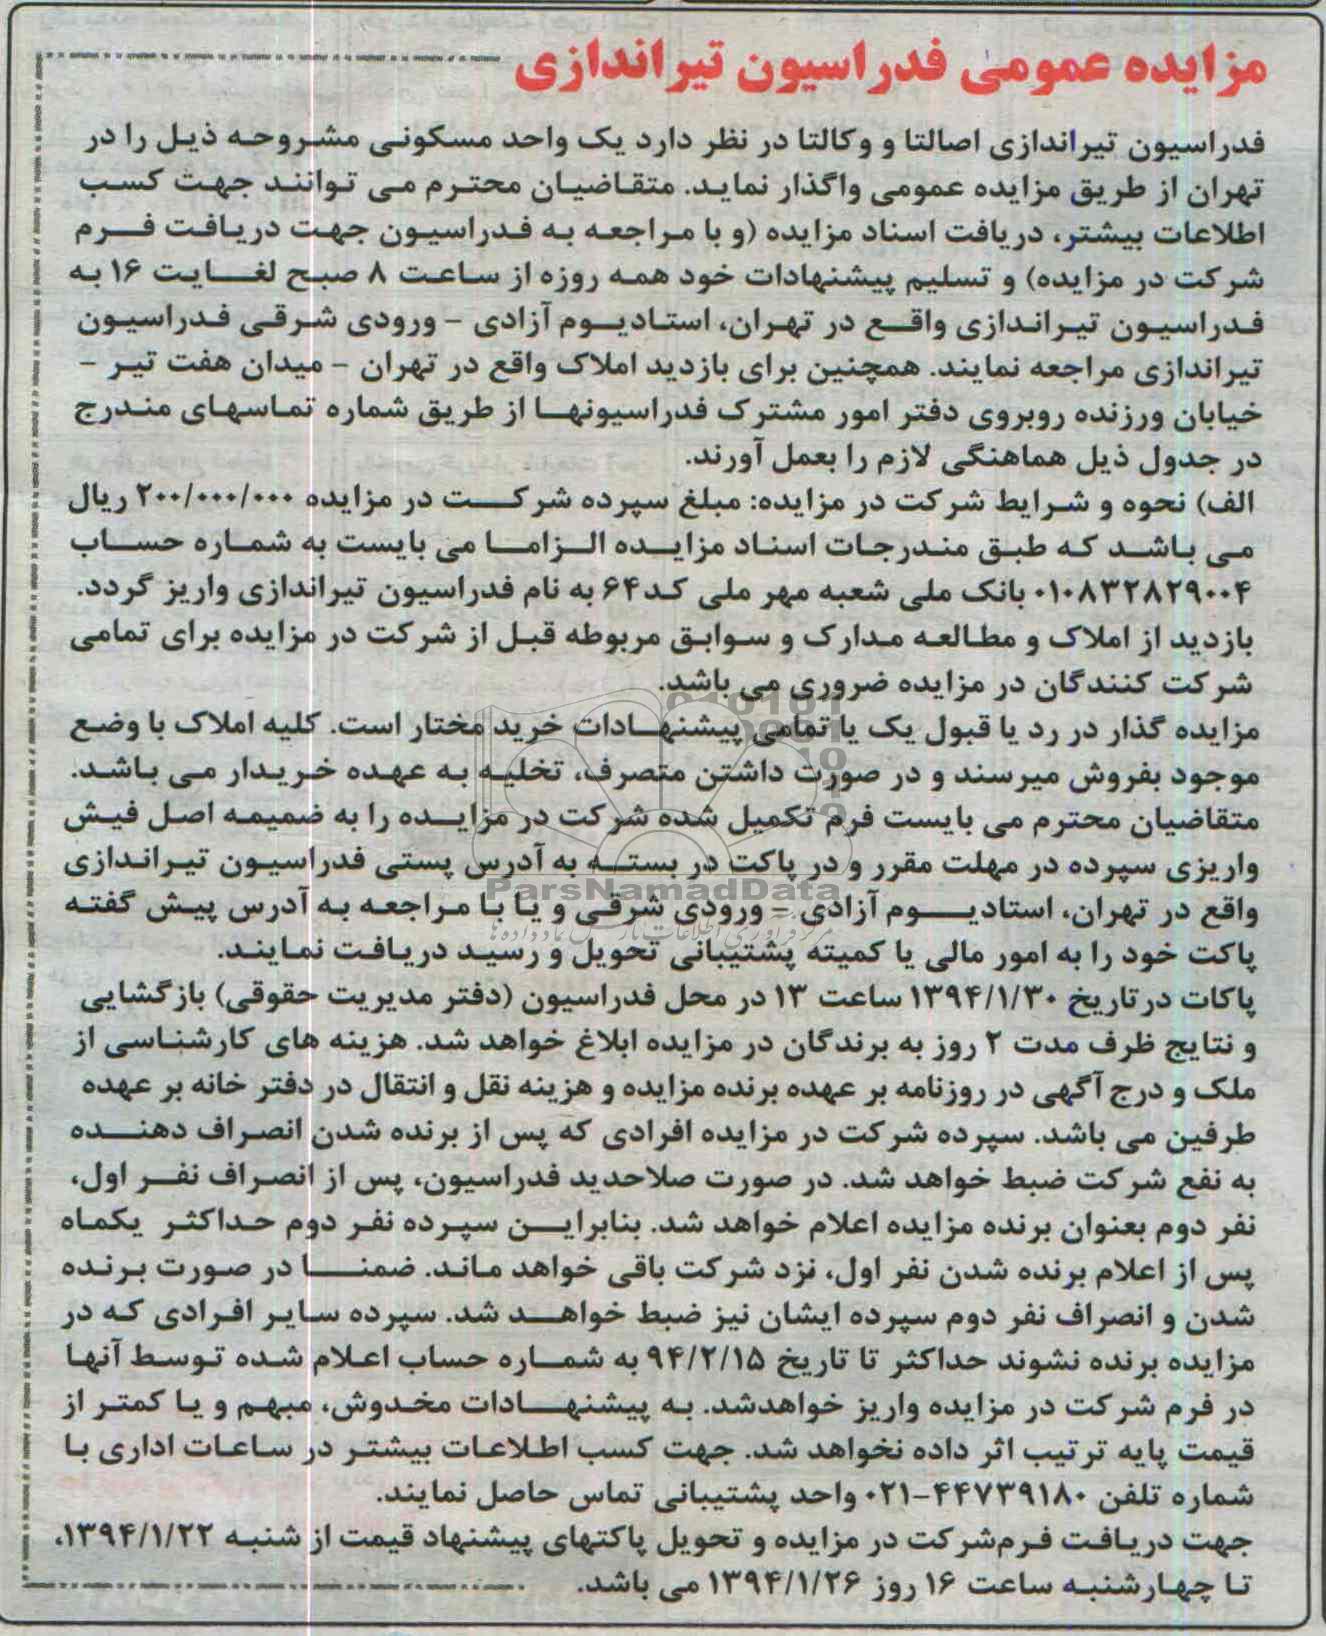 مزایده عمومی فدراسیون تیراندازی
فدراسیون تیراندازی اصالتا و وکالتا در نظر دارد یک واحد مسکونی مشروحه ذیل را در
تهران از طریق مزایده عمومی واگذار نماید. متقاضیان محترم می توانند جهت کسب
اطلاعات بیشتر، دریافت اسناد مزایده (و با مراجعه به فدراسیون جهت دریافت فرم
شرکت در مزایده) و تسلیم پیشنهادات خود همه روزه از ساعت ۸ صبح لغایت ۱۶ به
فدراسیون تیراندازی واقع در تهران، استادیوم آزادی - ورودی شرقی فدراسیون
تیراندازی مراجعه نمایند. همچنین برای بازدید املاک واقع در تهران - میدان هفت تیر -
خیابان ورزنده روبروی دفتر امور مشترک فدراسیونها از طریق شماره تماسهای مندرج
در جدول ذیل هماهنگی لازم را بعمل آورند.
الف) نحوه و شرایط شرکت در مزایده: مبلغ سپرده شرکت در مزایده ۲۰۰/۰۰۰/۰۰۰ ریال
می باشد که طبق مندرجات اسناد مزایده الزاما می بایست به شماره حساب
۰۱۰۸۳۲۸۲۹۰۰۴ بانک ملی شعبه مهر ملی کد ۶۴ به نام فدراسیون تیراندازی واریز گردد.
بازدید از املاک و مطالعه مدارک و سوابق مربوطه قبل از شرکت در مزایده برای تمامی
شرکت کنندگان در مزایده ضروری می باشد.
مزایده گذار در رد یا قبول یک یا تمامی پیشنهادات خرید مختار است. کلیه املاک با وضع
موجود بفروش میرسند و در صورت داشتن متصرف، تخلیه به عهده خریدار می باشد.
متقاضیان محترم می بایست فرم تکمیل شده شرکت در مزایده را به ضمیمه اصل فیش
واریزی سپرده در مهلت مقرر و در پاکت در بسته به آدرس پستی فدراسیون تیراندازی
واقع در تهران، استادیوم آزادی - ورودی شرقی و یا با مراجعه به آدرس پیش گفته
پاکت خود را به امور مالی یا کمیته پشتیبانی تحویل و رسید دریافت نمایند.
پاکات در تاریخ ۱۳۹۴/۱/۳۰ ساعت ۱۳ در محل فدراسیون (دفتر مدیریت حقوقی) بازگشایی
و نتایج ظرف مدت ۲ روز به برندگان در مزایده ابلاغ خواهد شد. هزینه های کارشناسی از
ملک و درج آگهی در روزنامه بر عهده برنده مزایده و هزینه نقل و انتقال در دفتر خانه بر عهده
طرفین می باشد. سپرده شرکت در مزایده افرادی که پس از برنده شدن انصراف دهنده
به نفع شرکت ضبط خواهد شد. در صورت صلاحدید فدراسیون، پس از انصراف نفر اول،
نفر دوم بعنوان برنده مزایده اعلام خواهد شد. بنابراین سپرده نفر دوم حداکثر یکماه
پس از اعلام برنده شدن نفر اول، نزد شرکت باقی خواهد ماند. ضمنا در صورت برنده
شدن و انصراف نفر دوم سپرده ایشان نیز ضبط خواهد شد. سپرده سایر افرادی که در
مزایده برنده نشوند حداکثر تا تاریخ ۹۴/۲/۱۵ به شماره حساب اعلام شده توسط آنها
در فرم شرکت در مزایده واریز خواهدشد. به پیشنهادات مخدوش، مبهم و یا کمتر از
قیمت پایه ترتیب اثر داده نخواهد شد. جهت کسب اطلاعات بیشتر در ساعات اداری با
شماره تلفن ۴۴۷۳۹۱۸۰-۰۲۱ واحد پشتیبانی تماس حاصل نمایند.
جهت دریافت فرم‌شرکت در مزایده و تحویل پاکتهای پیشنهاد قیمت از شنبه ۱۳۹۴/۱/۲۲،
تا چهارشنبه ساعت ۱۶ روز ۱۳۹۴/۱/۲۶ می باشد.
ParsNamadData